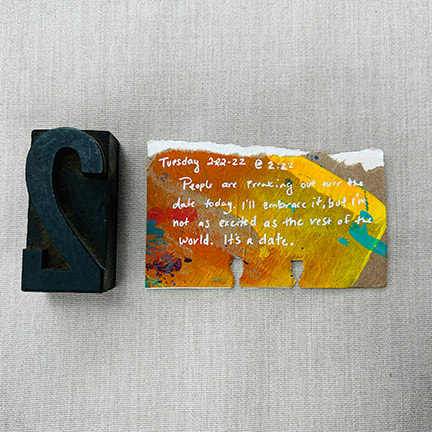 2
Tuesday 2-22-22 @ 2:22
People are freaking out over the
date today. I'll embrace it, but I'm
not as excited as the rest of the
world. It's a date.